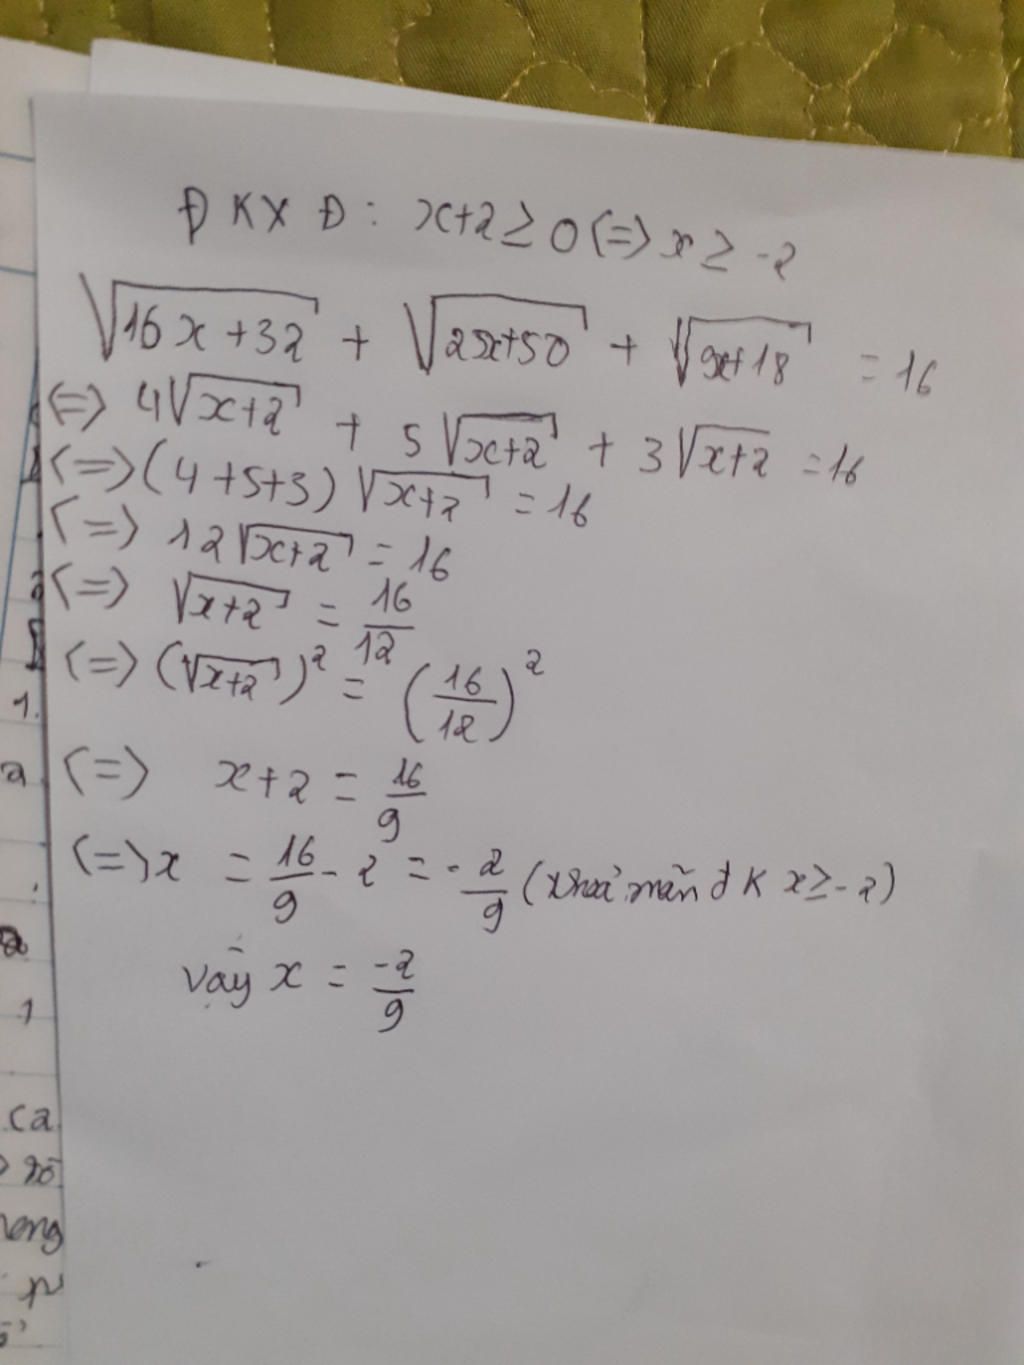 ĐKXĐ: x+2 ≥ 0 <=> x ≥ -2
√(16x+32) + √(25x+50) + √(9x+18) = 16
<=> 4√(x+2) + 5√(x+2) + 3√(x+2) = 16
<=> (4+5+3) √(x+2) = 16
<=> 12√(x+2) = 16
<=> √(x+2) = 16/12
<=> (√(x+2))² = (16/12)²
<=> x+2 = 16/9
<=> x = 16/9 - 2 = -2/9 (thoả mãn đk x ≥ -2)
Vậy x = -2/9
1.
a
1
ca